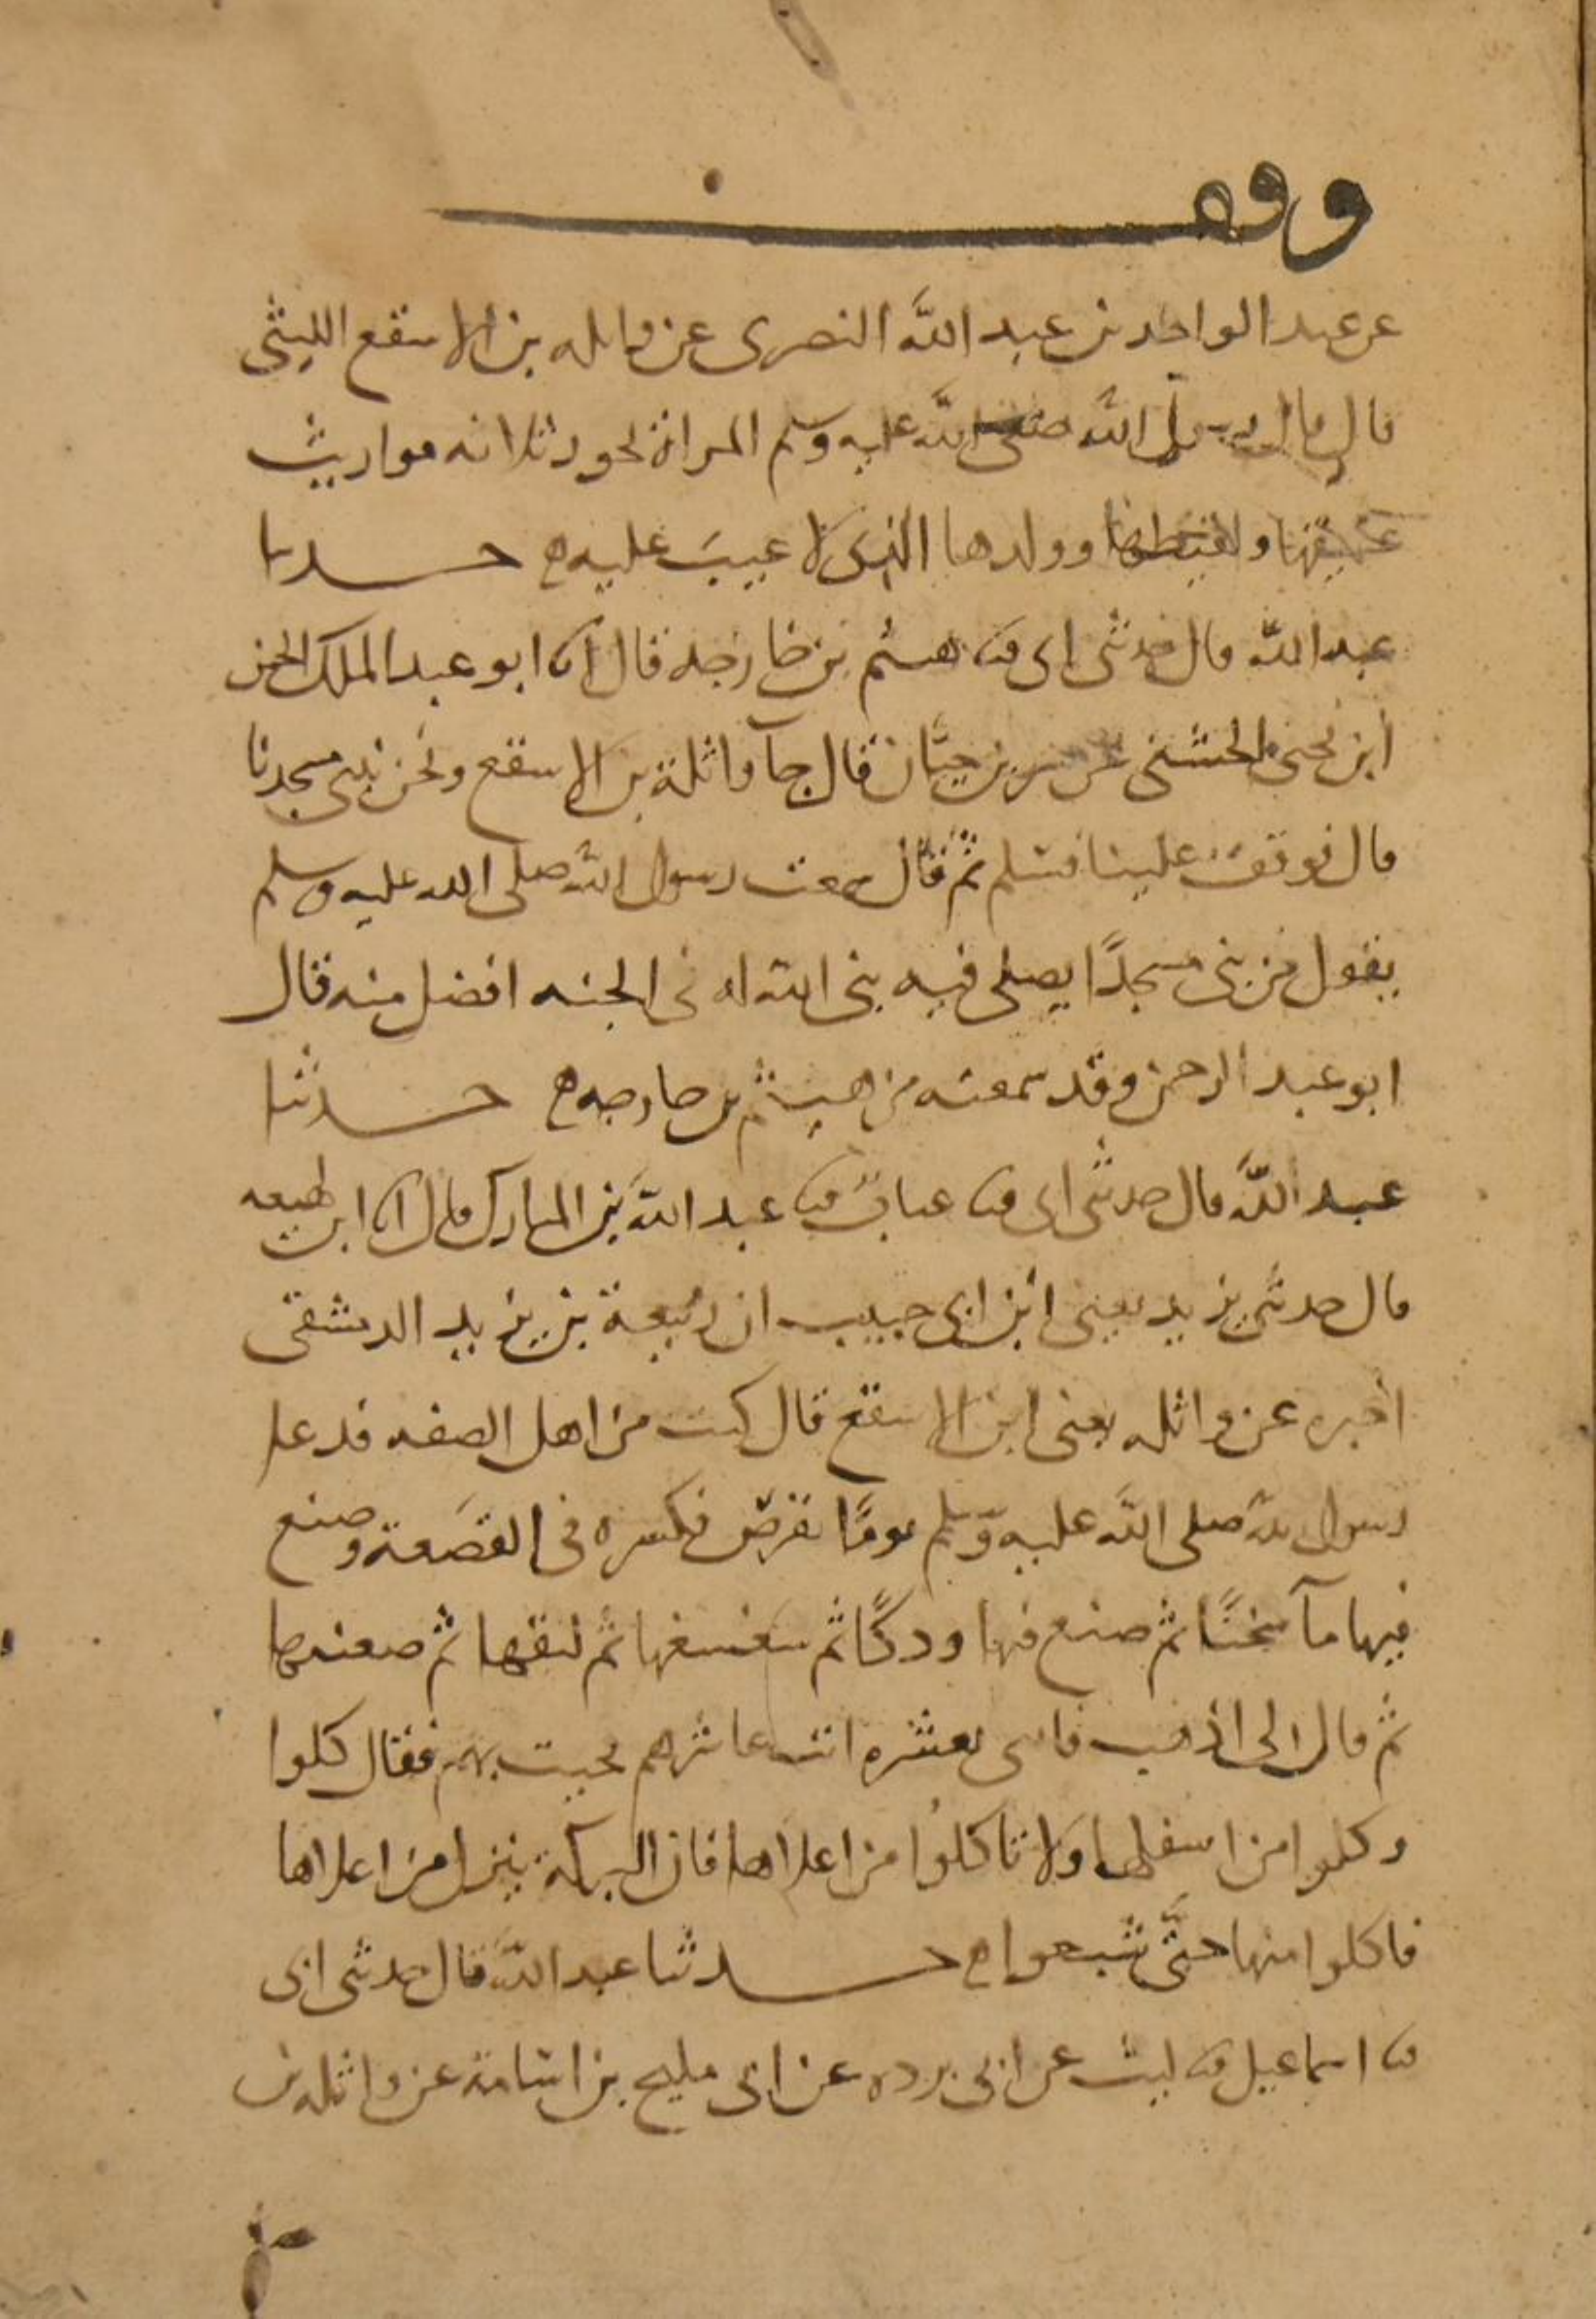 وقف
عن عبد الواحد بن عبد الله النصرى عن واثله بن الاسقع الليثى
قال قال رسول الله صلى الله عليه وسلم المراة تحوز ثلاثه مواريث
عتيقها ولقيطها وولدها الذى لاعنت عليه ه حدثنا
عبد الله قال حدثنى ابى ثنا هيثم بن خارجه قال انا ابو عبد الملك الحسن
ابن يحيى الخشنى عن بشر بن حيّان قال جآ واثلة بن الاسقع ونحن نبنى مسجدنا
قال فوقف علينا فسلم ثم قال سمعت رسول الله صلى الله عليه وسلم
يقول من بنى مسجدًا يصلى فيه بنى الله له فى الجنه افضل منه قال
ابو عبد الرحمن وقد سمعته من هيثم بن خارجه ه حدثنا
عبد الله قال حدثنى ابى ثنا عتاب ثنا عبد الله بن المبارك قال انا ابن لهيعه
قال حدثنى يزيد يعنى ابن ابى حبيب ان ربيعة بن يزيد الدمشقى
اخبره عن واثله يعنى ابن الاسقع قال كنت من اهل الصفه فدعا
رسول الله صلى الله عليه وسلم يومًا بقرص فكسره فى القصعة وصنع
فيها مآ سخنًا ثم صنع فيها ودكًا ثم سغسغها ثم لبقها ثم صعنبها
ثم قال لى اذهب فاتنى بعشره انت عاشرهم فجيت بهم فقال كلوا
وكلوا من اسفلها ولا تاكلوا من اعلاها فان البركة ينزل من اعلاها
فاكلوا منها حتَّى شبعوا ه حدثنا عبد الله قال حدثنى ابى
ثنا اسماعيل ثنا ليث عن ابى برده عن ابى مليح بن اسامة عن واثله بن